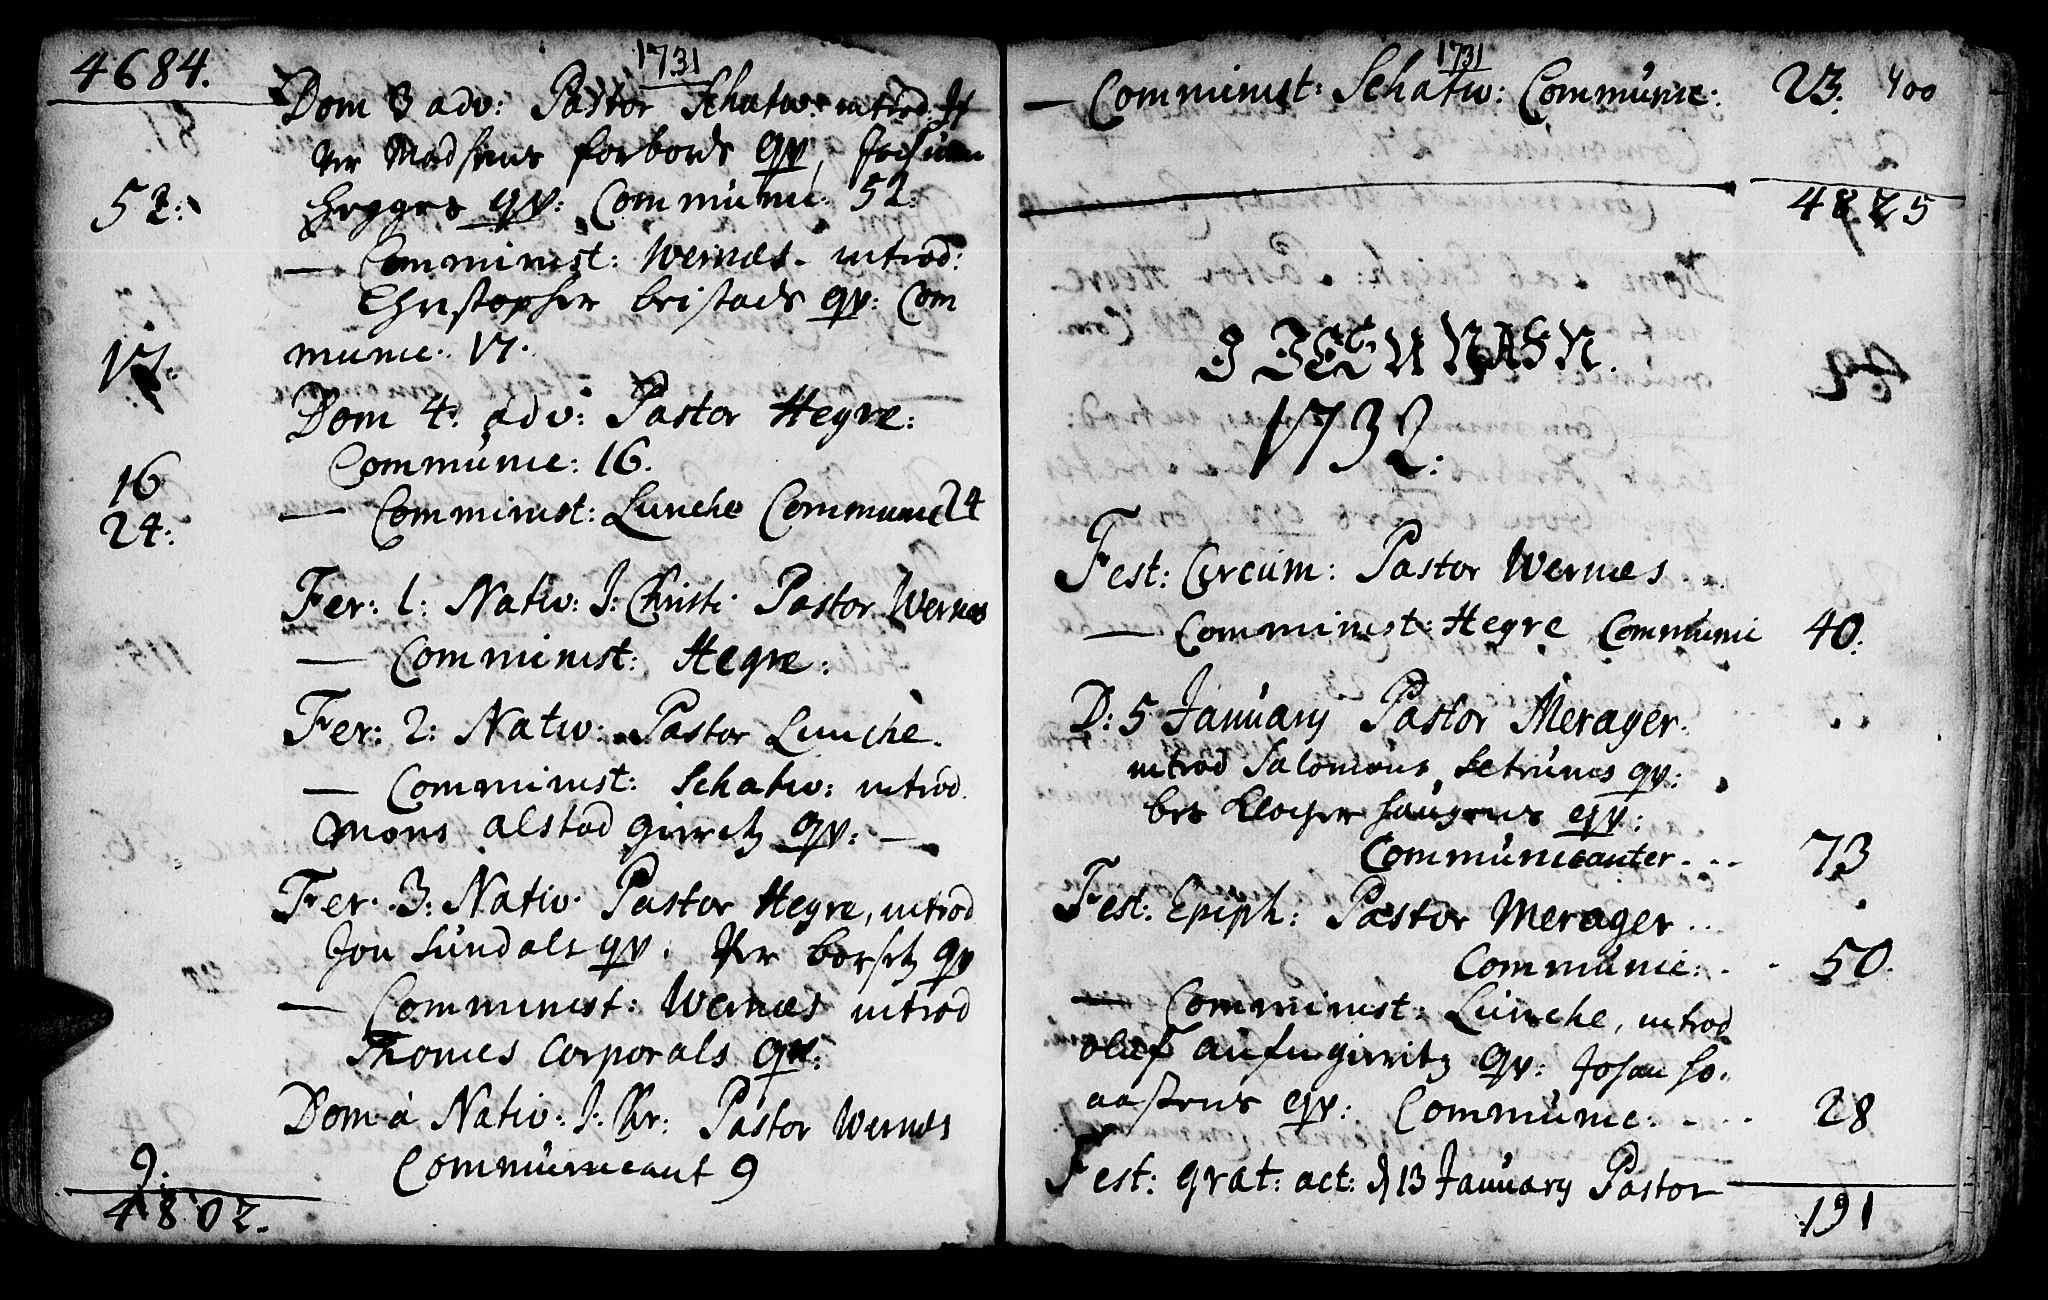 4684.
1731
Dom 3 adv: Pastor Schatw: introd:
Per Madsens forbords qv,
qv: Communic: 52:
52:
— Comminist: Wernæs. introd:
Christopher bristads qv: Com
munic: 17.
17:
Dom 4. adv: Pastor Hegre:
Communic: 16.
16
— Comminist: Lunche Communic 24
24:
Fer: 1: Nativ: J: Christi Pastor Wernæs
— Comminist: Hegre:
Fer: 2: Nativ: Pastor Lunche.
— Comminist: Schatw: introd.
Mons alstad girritz qv: —
Fer. 3: Nativ. Pastor Hegre, introd
Jon Sundals qv. Per borsetz qv
— Comminist: Wernæs introd
Thomes Corporals qv:
Dom à Nativ: J: Chr: Pastor Wernæs
Communicant 9
9:
4802.
1731
— Comminist: Schatw: Communic: 23. 400
4825
1732:
Fest: Circum: Pastor Wernæs . .
— Comminist: Hegre Communic 40:
D: 5 January Pastor Merager.
introd Salomons qv:
qv:
Communicanter. . . 73
Fest: Epiph: Pastor Merager . .
Communic: . . 50.
— Comminist: Lunche, introd
oluf girritz qv: Johan
qv: Communic: . . . 28
Fest: grat: act: d 13 January Pastor
191